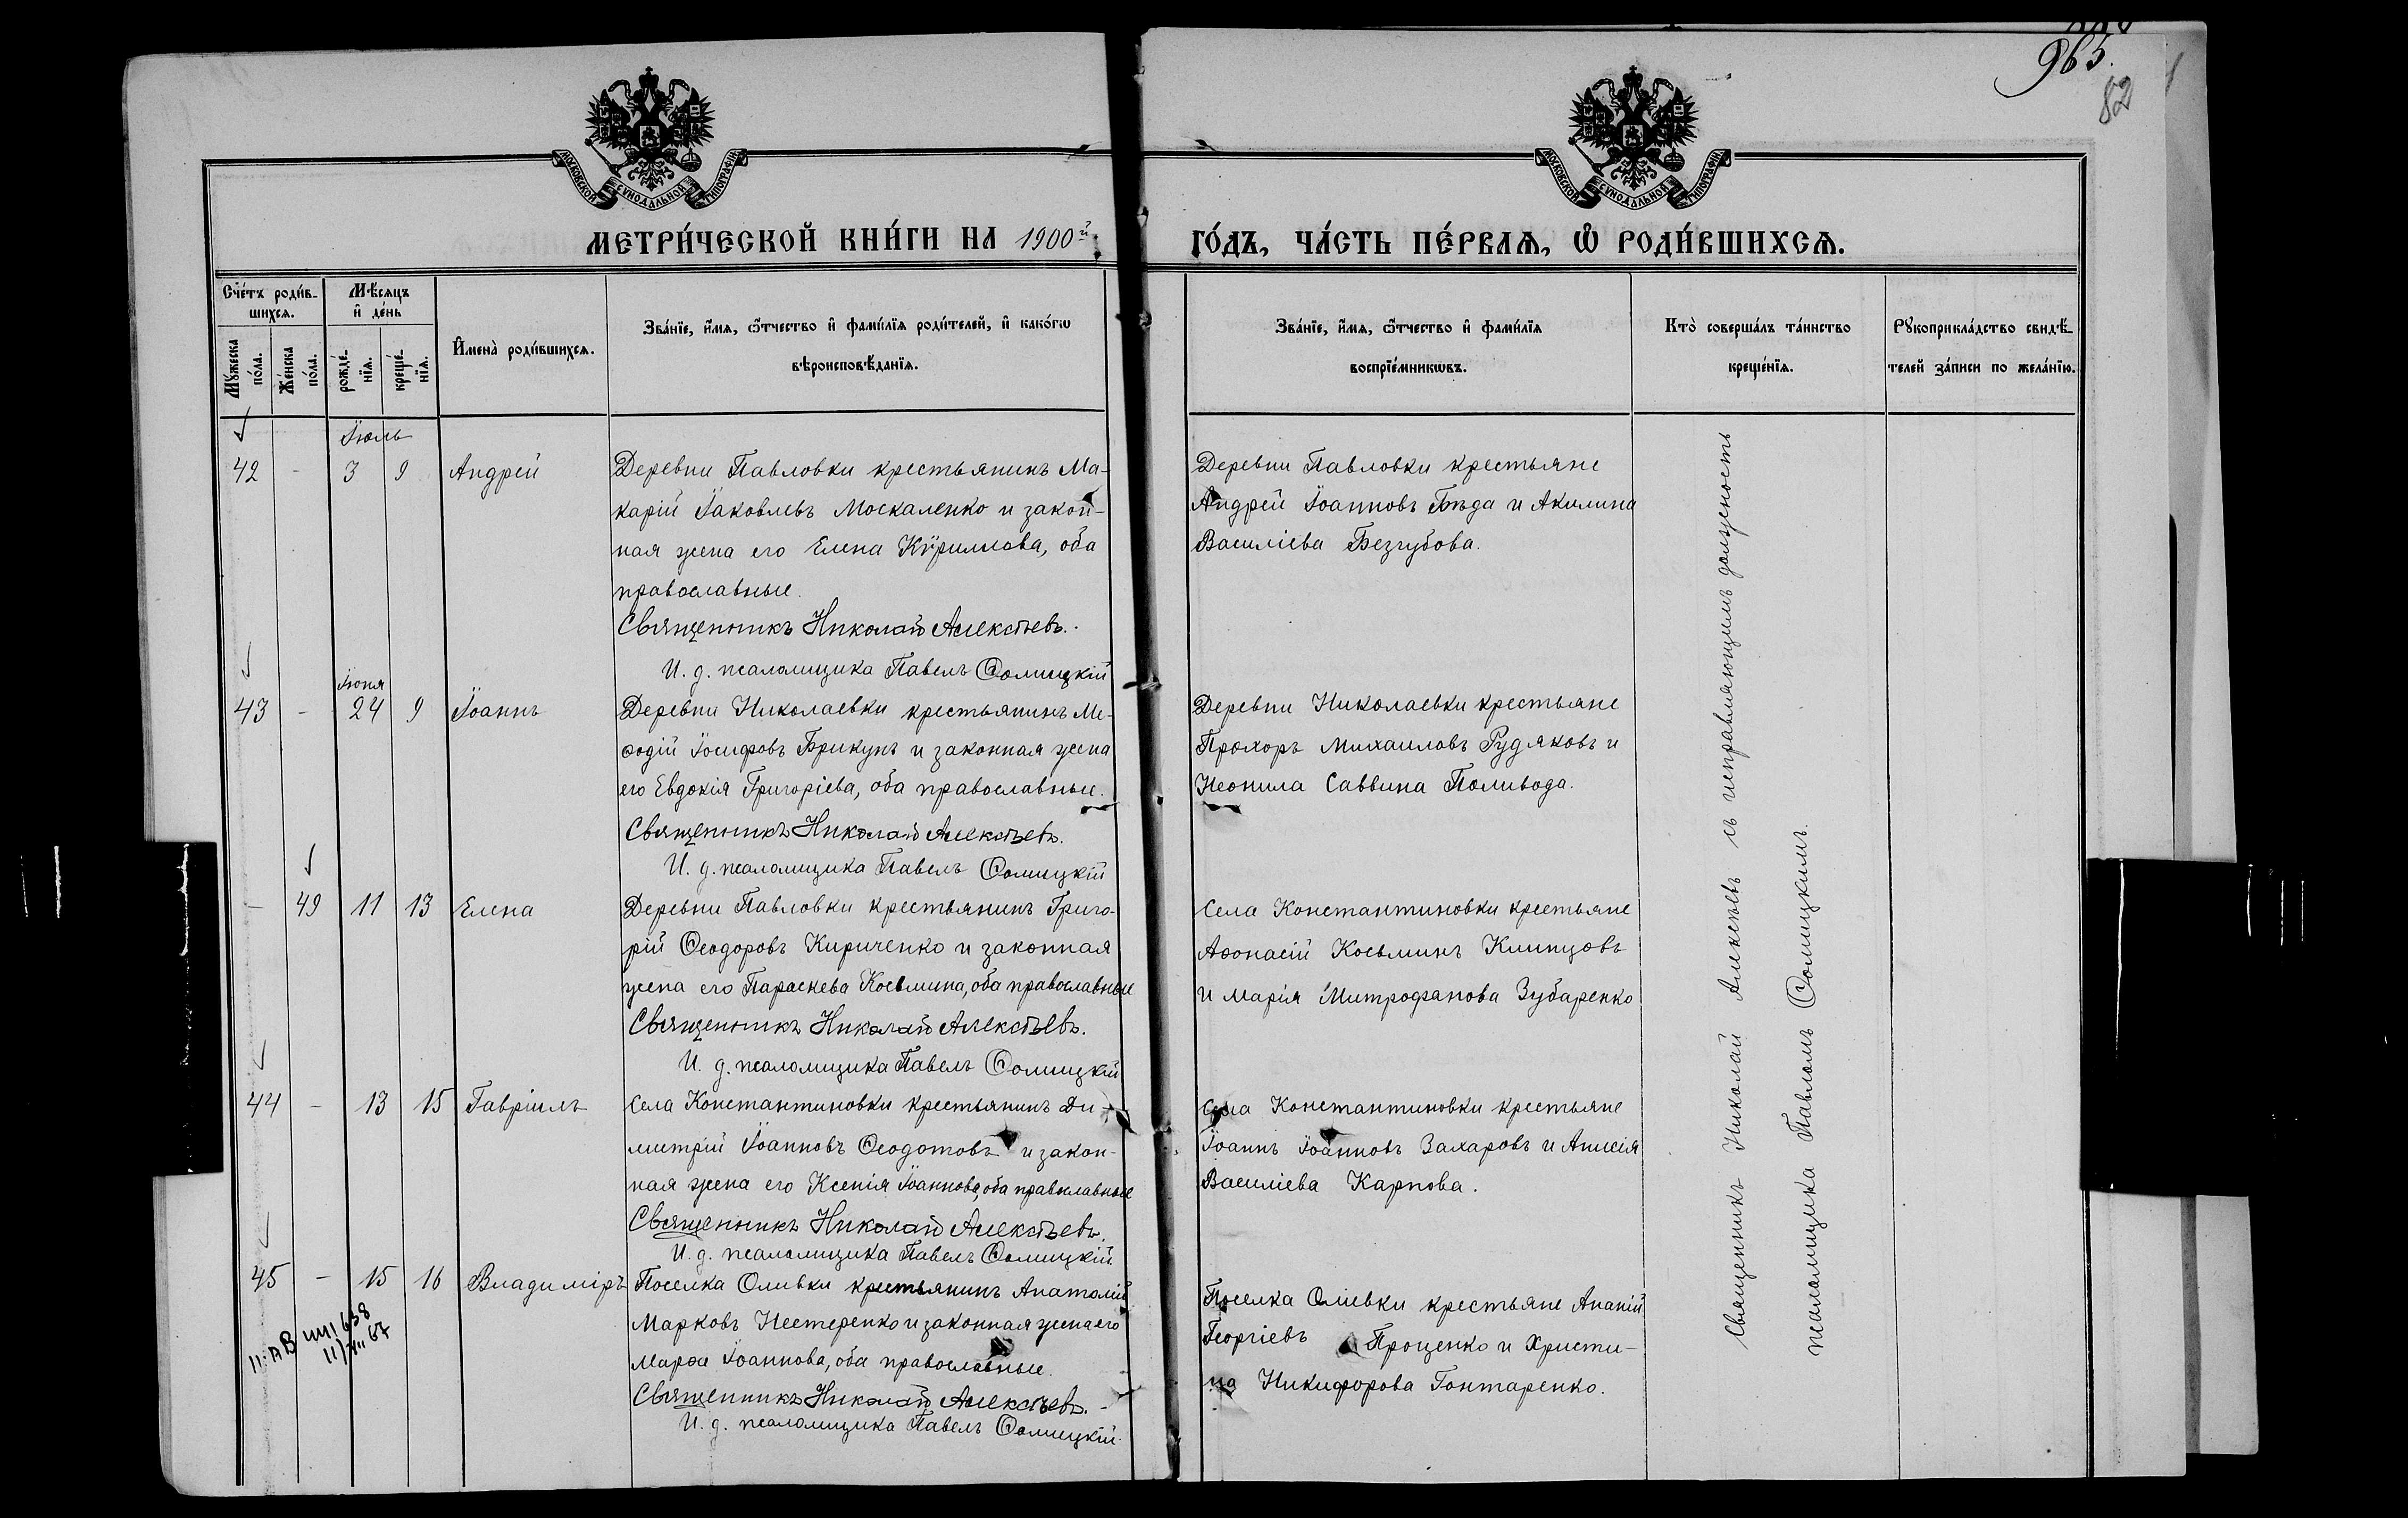 965.
82
МОСКОВСКОЙ СѴНОДАЛЬНОЙ ТИПОГРАФІИ
МОСКОВСКОЙ СѴНОДАЛЬНОЙ ТИПОГРАФІИ
МЕТРИ́ЧЕСКОЙ КНИ́ГИ НА 1900й
ГО́ДЪ, ЧА́СТЬ ПЕ́РВАѦ, Ѡ҆ РОДИ́ВШИХСѦ.
Сче́тъ роди́в-
шихсѧ.
Мѣ́сѧцъ
и҆ де́нь
Мꙋ́жеска
по́ла.
Же́нска
по́ла.
рожде́-
нїѧ.
креще́-
нїѧ.
И҆мена̀ роди́вшихсѧ.
Зва́нїе, и҆́мѧ, ѻ҆́тчество и҆ фами́лїѧ роди́телей, и҆ како́гѡ
вѣроисповѣ́данїѧ.
Зва́нїе, и҆́мѧ, ѻ҆́тчество и҆ фами́лїѧ
воспрїе́мникѡвъ.
Кто̀ соверша́лъ та́инство
креще́нїѧ.
Рꙋкоприкла́дство свидѣ́-
телей за́писи по жела́нїю.
Іюль
42 - 3 9 Андрей
Деревни Павловки крестьянинъ Ма-
карій Іаковлевъ Москаленко и закон-
ная жена его Елена Кѵриллова, оба
православные.
Священникъ Николай Алексѣевъ.
И. д. псаломщика Павелъ Солицкій
Деревни Павловки крестьяне
Андрей Іоанновъ Бѣда и Акилина
Василіева Безгубова.
Іюня
43 - 24 9 Іоаннъ
Деревни Николаевки крестьянинъ Ме-
ѳодій Іосифовъ Брикунъ и законная жена
его Евдокія Григоріева, оба православные.
Священникъ Николай Алексѣевъ.
И. д. псаломщика Павелъ Солицкій
Деревни Николаевки крестьяне
Прохоръ Михаиловъ Рудяковъ и
Неонила Саввина Поливода.
- 49 11 13 Елена
Деревни Павловки крестьянинъ Григо-
рій Ѳеодоровъ Кириченко и законная
жена его Параскева Косьмина, оба православные
Священникъ Николай Алексѣевъ.
И. д. псаломщика Павелъ Солицкій
Села Константиновки крестьяне
Аѳонасій Косьминъ Клинцовъ
и Марія Митрофанова Зубаренко
44 - 13 15 Гавріилъ
Села Константиновки крестьянинъ Ди-
митрій Іоанновъ Ѳеодотовъ и закон-
ная жена его Ксенія Іоаннова, оба православные
Священникъ Николай Алексѣевъ.
И. д. псаломщика Павелъ Солицкій
Села Константиновки крестьяне
Іоаннъ Іоанновъ Захаровъ и Анисія
Василіева Карпова.
45 - 15 16 Владиміръ
Поселка Оливки крестьянинъ Анатолій
Марковъ Нестеренко и законная жена его
Марѳа Іоаннова, оба православные.
Священникъ Николай Алексѣевъ.
И. д. псаломщика Павелъ Солицкій.
Поселка Оливки крестьяне Ананій
Георгіевъ Проценко и Христи-
на Никифорова Гонтаренко.
Священникъ Николай Алексѣевъ съ исправляющимъ должность
псаломщика Павломъ Солицкимъ.